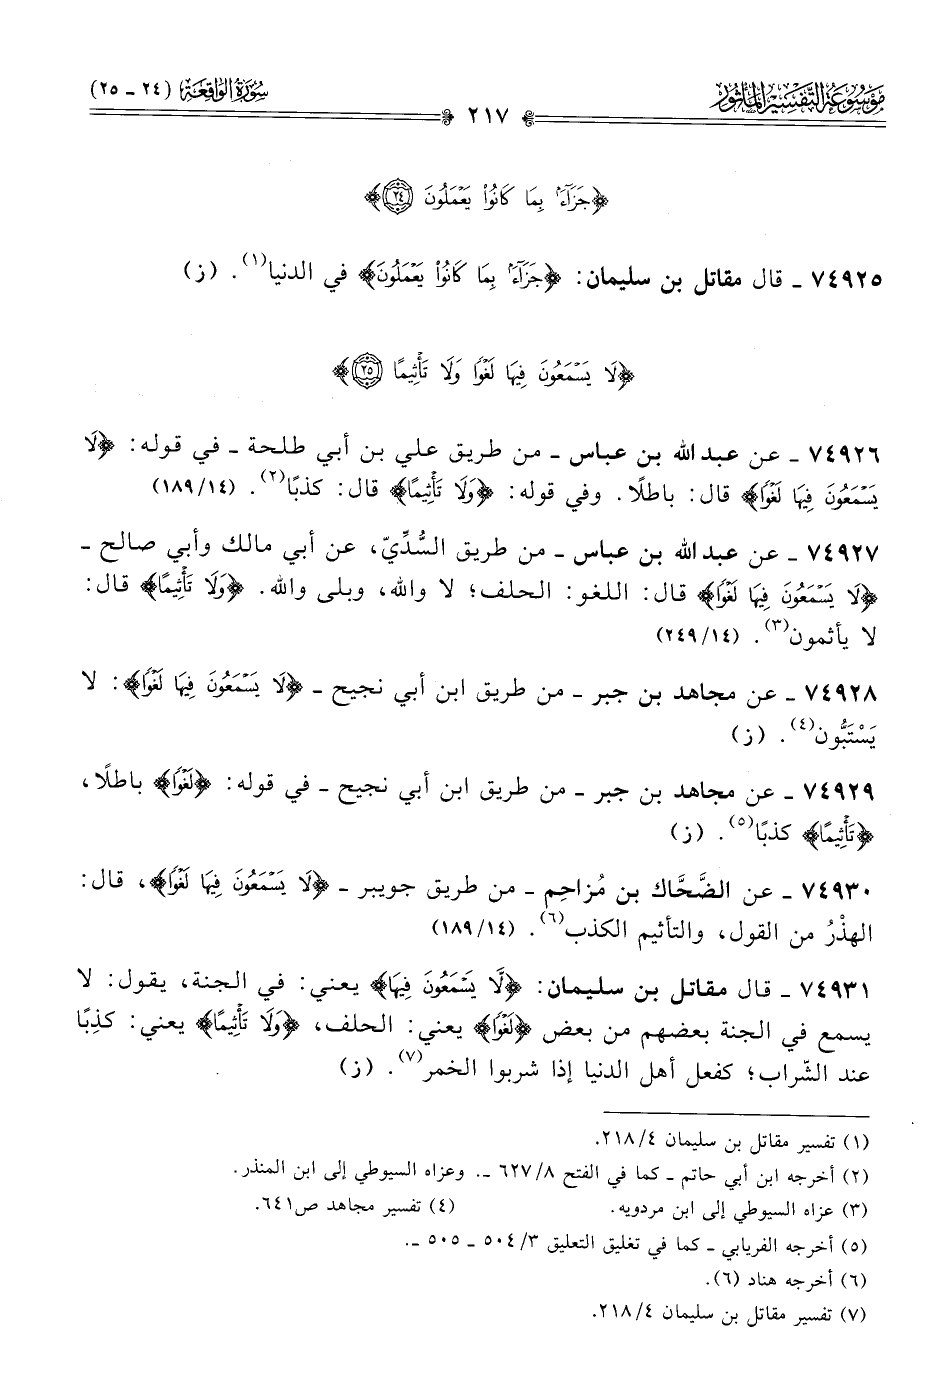 مَوْسُوعَة التَّفْسِير المَأْثُور
سُورَةُ الْوَاقِعَة (٢٤ - ٢٥)
٢١٧
﴿جَزَآءَۢ بِمَا كَانُوا۟ يَعْمَلُونَ ٢٤﴾
٧٤٩٢٥ - قال مقاتل بن سليمان: ﴿جَزَآءَۢ بِمَا كَانُوا۟ يَعْمَلُونَ﴾ في الدنيا(١). (ز)
﴿لَا يَسْمَعُونَ فِيهَا لَغْوًا وَلَا تَأْثِيمًا ٢٥﴾
٧٤٩٢٦ - عن عبد الله بن عباس - من طريق علي بن أبي طلحة - في قوله: ﴿لَا
يَسْمَعُونَ فِيهَا لَغْوًا﴾ قال: باطلًا. وفي قوله: ﴿وَلَا تَأْثِيمًا﴾ قال: كذبًا(٢). (١٨٩/١٤)
٧٤٩٢٧ - عن عبد الله بن عباس - من طريق السُّدِّيّ، عن أبي مالك وأبي صالح -
﴿لَا يَسْمَعُونَ فِيهَا لَغْوًا﴾ قال: اللغو: الحلف؛ لا والله، وبلى والله. ﴿وَلَا تَأْثِيمًا﴾ قال:
لا يأثمون(٣). (٢٤٩/١٤)
٧٤٩٢٨ - عن مجاهد بن جبر - من طريق ابن أبي نجيح - ﴿لَا يَسْمَعُونَ فِيهَا لَغْوًا﴾: لا
يَسْتَبُّون(٤). (ز)
٧٤٩٢٩ - عن مجاهد بن جبر - من طريق ابن أبي نجيح - في قوله: ﴿لَغْوًا﴾ باطلًا،
﴿تَأْثِيمًا﴾ كذبًا(٥). (ز)
٧٤٩٣٠ - عن الضَّحَّاك بن مُزاحِم - من طريق جويبر - ﴿لَا يَسْمَعُونَ فِيهَا لَغْوًا﴾، قال:
الهذْرُ من القول، والتأثيم الكذب(٦). (١٨٩/١٤)
٧٤٩٣١ - قال مقاتل بن سليمان: ﴿لَّا يَسْمَعُونَ فِيهَا﴾ يعني: في الجنة، يقول: لا
يسمع في الجنة بعضهم من بعض ﴿لَغْوًا﴾ يعني: الحلف، ﴿وَلَا تَأْثِيمًا﴾ يعني: كذِبًا
عند الشّراب؛ كفعل أهل الدنيا إذا شربوا الخمر(٧). (ز)
(١) تفسير مقاتل بن سليمان ٢١٨/٤.
(٢) أخرجه ابن أبي حاتم - كما في الفتح ٦٢٧/٨ -. وعزاه السيوطي إلى ابن المنذر.
(٣) عزاه السيوطي إلى ابن مردويه. (٤) تفسير مجاهد ص٦٤١.
(٥) أخرجه الفريابي - كما في تغليق التعليق ٥٠٤/٣ - ٥٠٥ -.
(٦) أخرجه هناد (٦).
(٧) تفسير مقاتل بن سليمان ٢١٨/٤.